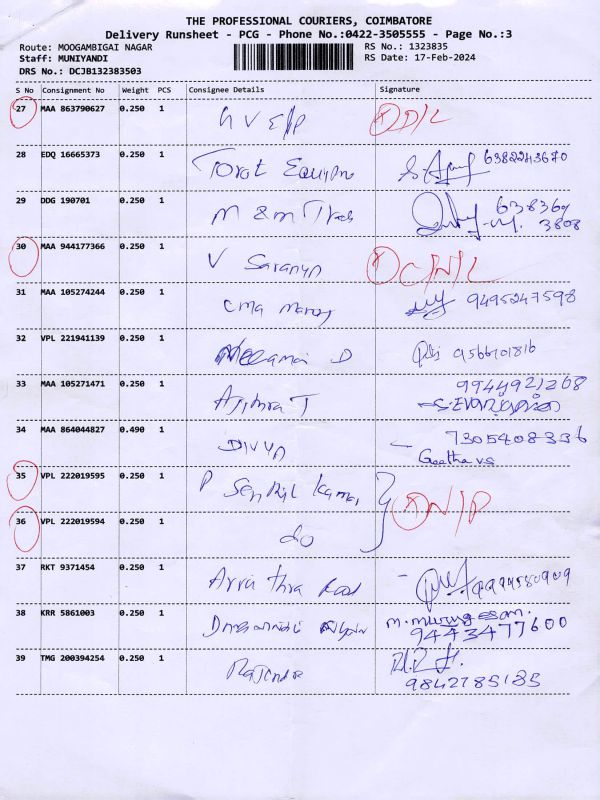 THE PROFESSIONAL COURIERS, COIMBATORE
Delivery Runsheet - PCG - Phone No.:0422-3505555 - Page No.:3
Route: MOOGAMBIGAI NAGAR RS No.: 1323835
Staff: MUNIYANDI RS Date: 17-Feb-2024
DRS No.: DCJB132383503
S No Consignment No Weight PCS Consignee Details Signature
27 MAA 863790627 0.250 1 D/L
28 EDQ 16665373 0.250 1 6382243670
29 DDG 190701 0.250 1 M & M 638369
3808
30 MAA 944177366 0.250 1 V Saranya C/N/L
31 MAA 105274244 0.250 1 CMA 9495247598
32 VPL 221941139 0.250 1 D 9566101816
33 MAA 105271471 0.250 1 T 9944921268
34 MAA 864044827 0.490 1 DIVYA 7305408336
Geetha v.s
35 VPL 222019595 0.250 1 P Senthil Kumar N/P
36 VPL 222019594 0.250 1 do
37 RKT 9371454 0.250 1
38 KRR 5861003 0.250 1 M. Murugesan.
9443477600
39 TMG 200394254 0.250 1 9842785135